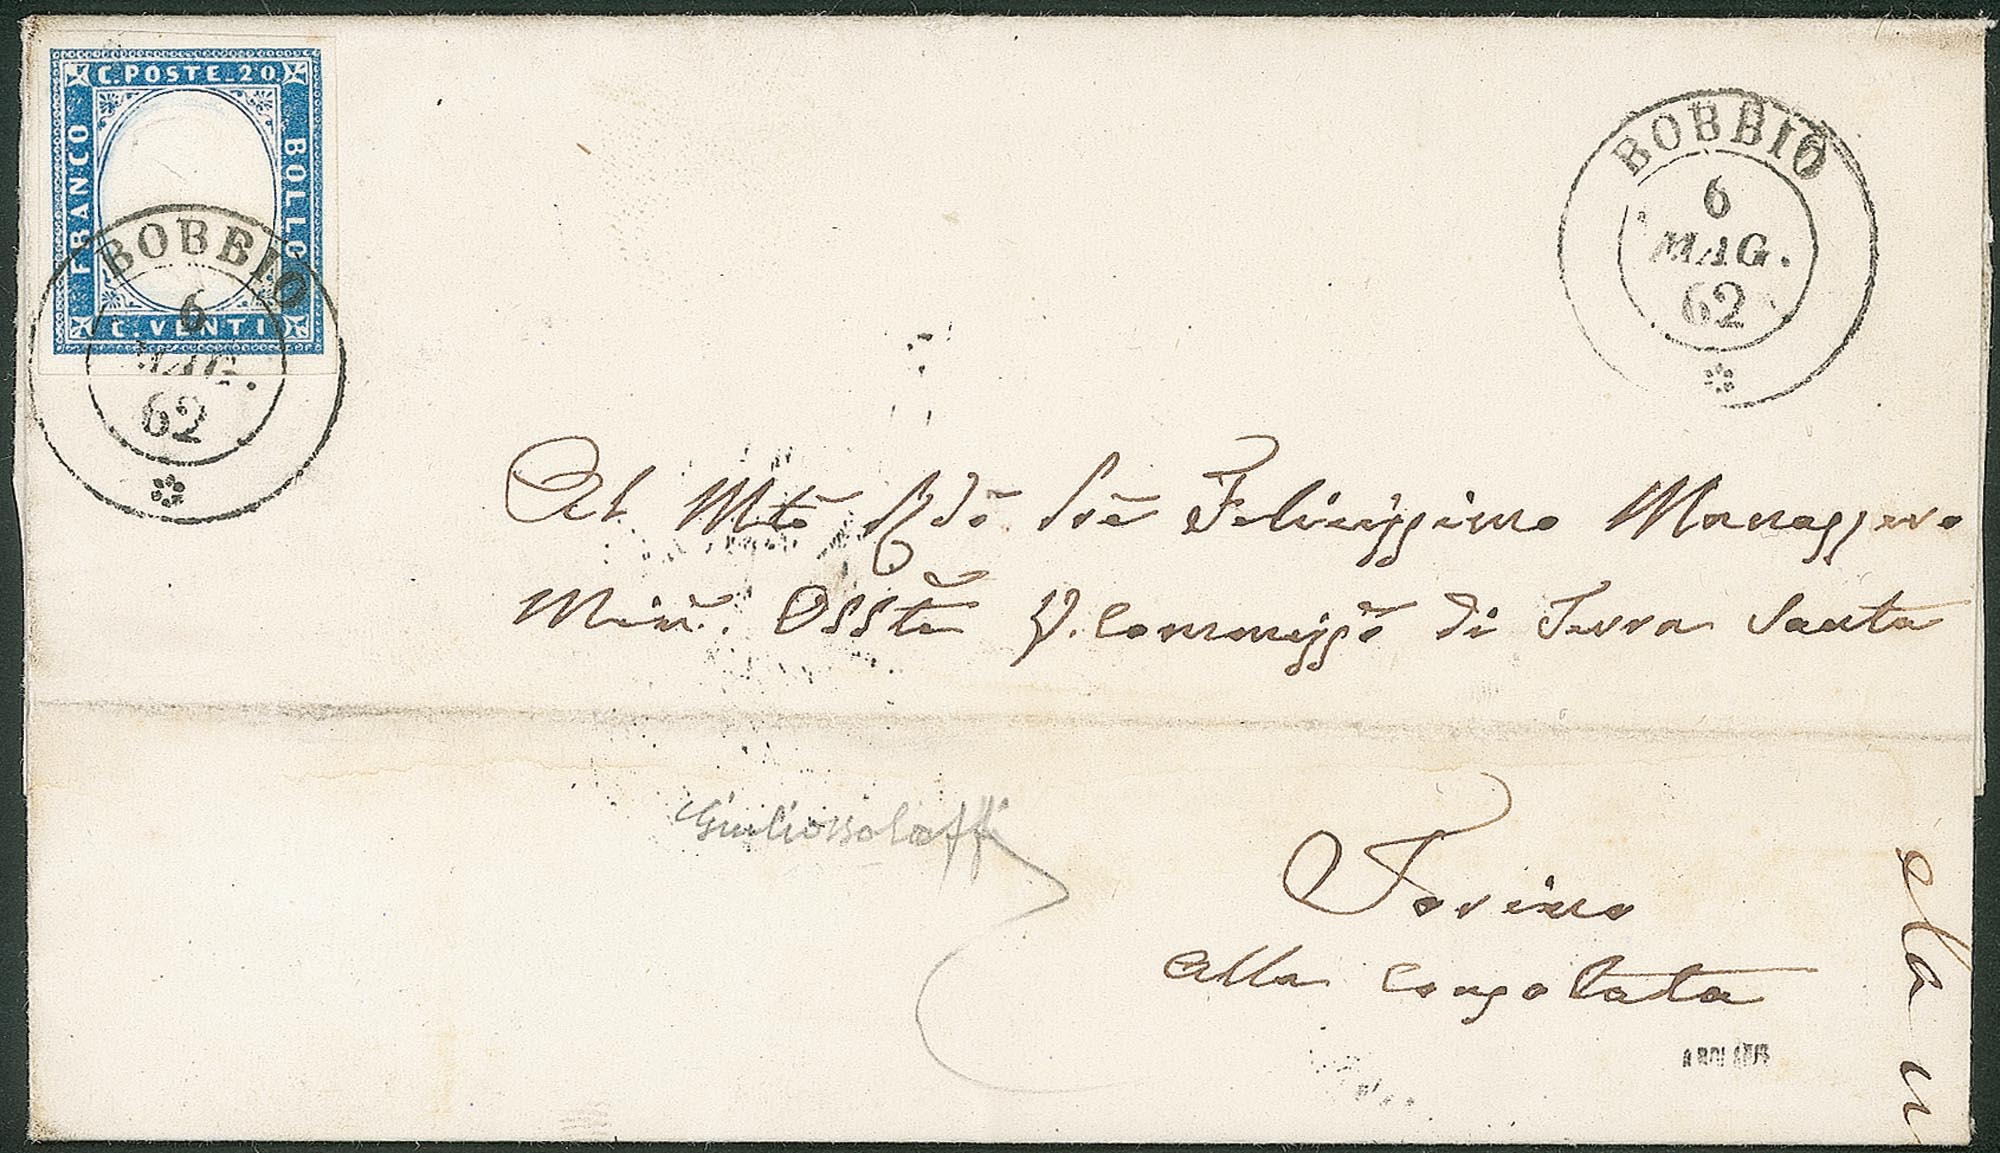 C. POSTE_20
FRANCO
BOLLO
C. VENTI
BOBBIO
6
MAG.
62
BOBBIO
6
MAG.
62
Al Mto Rdo Pre Feliicissimo
Min. Osste V. Commisso di Terra Santa
Giulio Bolaffi
Torino
alla Consolata
A BOLAFFI